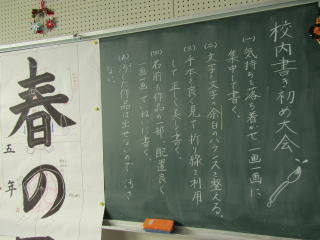 校内書き初め大会
(一)気持ちを落ち着かせ、一画一画に
集中して書く。
(二)文字と文字の余白のバランスを整える。
(三)手本を良く見て、折り線を利用
して正しく美しく書く。
(四)名前も作品の一部、配置良く
一画一画ていねいに書く。
作品は出せないので
ない。
春の
五年